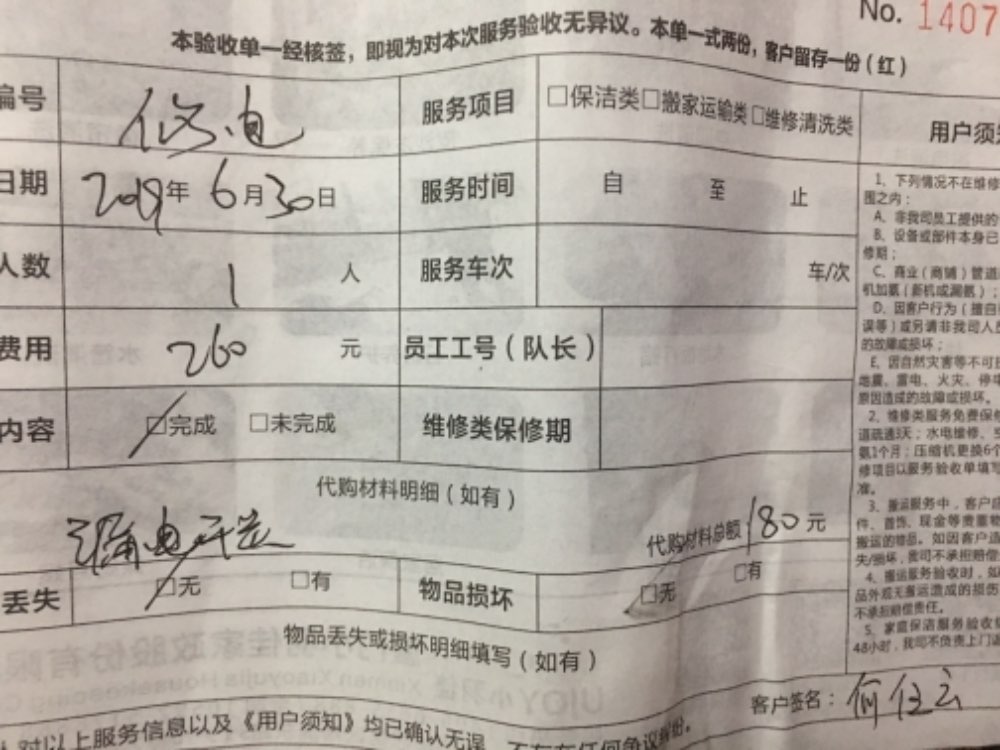 No. 1407
本验收单一经核签，即视为对本次服务验收无异议。本单一式两份，客户留存一份（红）
编号 修电 服务项目 □保洁类□搬家运输类□维修清洗类
用户须
日期 2019年 6月30日 服务时间 自 至 止
人数 1 人 服务车次 车/次
费用 260 元 员工工号（队长）
内容 □完成 □未完成 维修类保修期
代购材料明细（如有）
漏电开关 代购材料总额 180元
丢失 □无 □有 物品损坏 □无 □有
物品丢失或损坏明细填写（如有）
客户签名：
对以上服务信息以及《用户须知》均已确认无误
1、下列情况不在维修
围之内：
A、非我司员工提供的
B、设备或部件本身已
修期；
C、商业（商铺）管道
机加氨（新机或漏氨）；
D、因客户行为（擅自
误等）或另请非我司人员
的故障或损坏；
E、因自然灾害等不可
地震、雷电、火灾、停电
原因造成的故障或损坏。
2、维修类服务免费保
道疏通3天；水电维修、
氨1个月；压缩机更换6个
修项目以服务验收单填写
准。
3、搬运服务中，客户
件、首饰、现金等贵重
搬运的物品。如因客户
失/损坏，我司不承担赔偿
4、搬运服务验收时，如
品外观无搬运造成的损伤
不承担赔偿责任。
5、家庭保洁服务验收
48小时，我司不负责上门